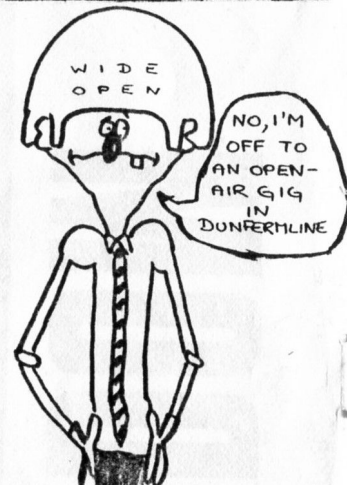 WIDE
OPEN
NO, I'M
OFF TO
AN OPEN-
AIR GIG
IN
DUNFERMLINE